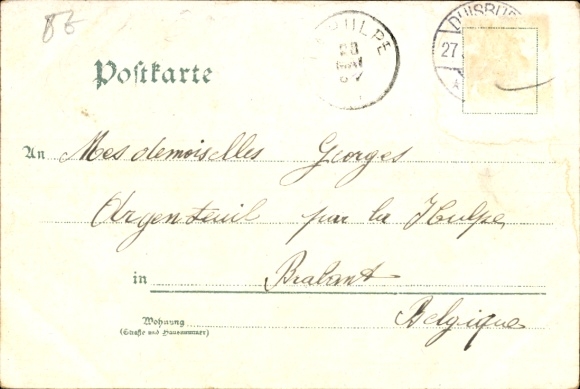 86
DUISBU
27
HULPE
28
MAI
Postkarte
An Mesdemoiselles Georges
Argenteuil par la Hulpe
in Brabant
Belgique
Wohnung
(Straße und Hausnummer)